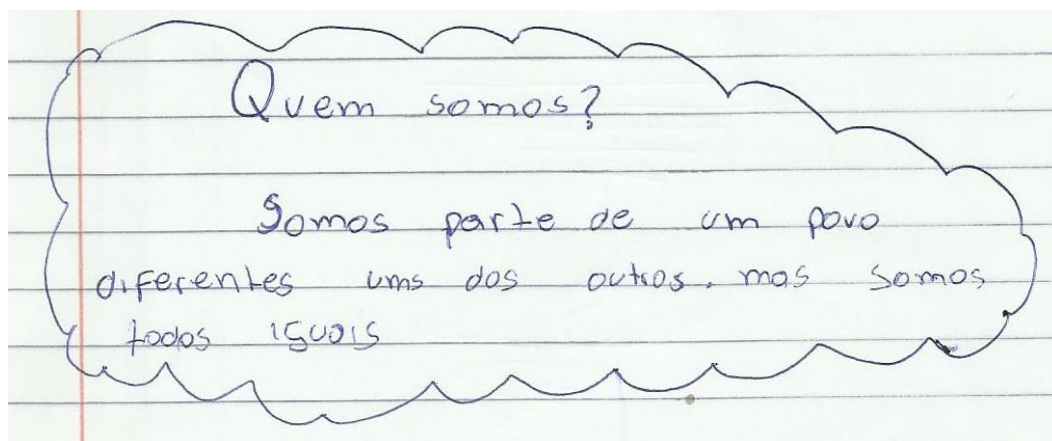 Quem somos?
Somos parte de um povo
diferentes ums dos outros. mas somos
todos iguais